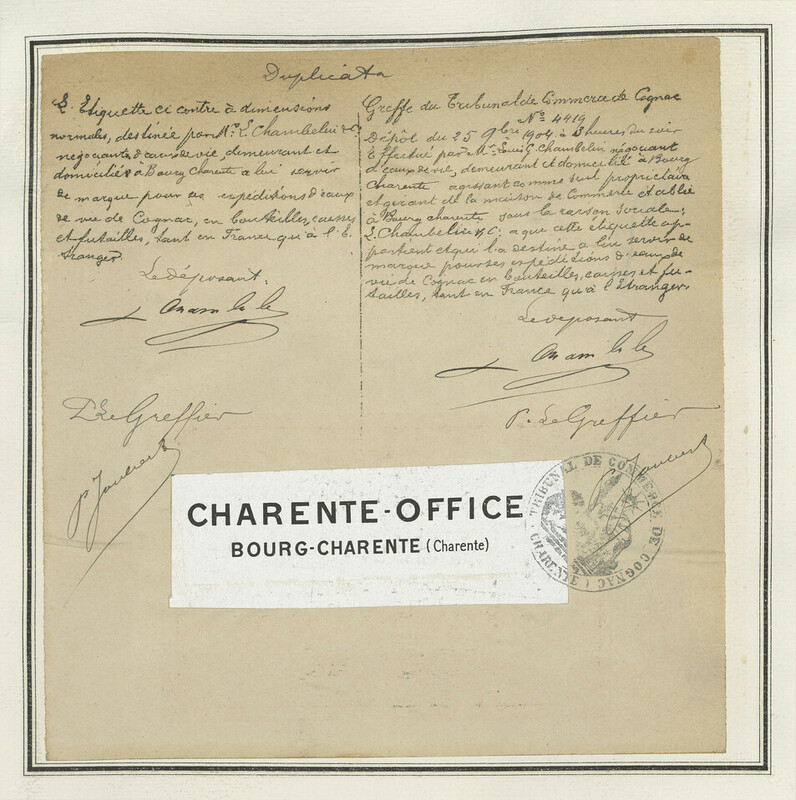 Duplicata
L'Etiquette ci contre à dimensions
normales, destinée par Mr. L. Chambelin & Co
négociants d'eaux de vie, demeurant et
domiciliés à Bourg Charente a lui servir
de marque pour ses expéditions d'eaux
de vie de Cognac, en bouteilles, caisses
et futailles, tant en France qu'à l'E
tranger
Le déposant.
Greffe du Tribunal de Commerce de Cognac
No 4419
Dépôt du 25 9bre 1904 à 3 heures du soir
Effectué par Mr. Louis G. Chambelin négociant
d'eaux de vie, demeurant et domicilié à Bourg
Charente agissant comme seul propriétaire
et gérant de la maison de Commerce établie
à Bourg charente sous la raison sociale;
L. Chambelin & Co a que cette étiquette ap-
partient et qui l'a destiné a lui servir de
marque pour ses expéditions d'eaux de
vie de Cognac en bouteilles, caisses et fu-
tailles, tant en France qu'à l'Etranger
Le déposant
Le Greffier
P. Le Greffier
CHARENTE-OFFICE
BOURG-CHARENTE (Charente)
TRIBUNAL DE COMMERCE DE COGNAC (CHARENTE)